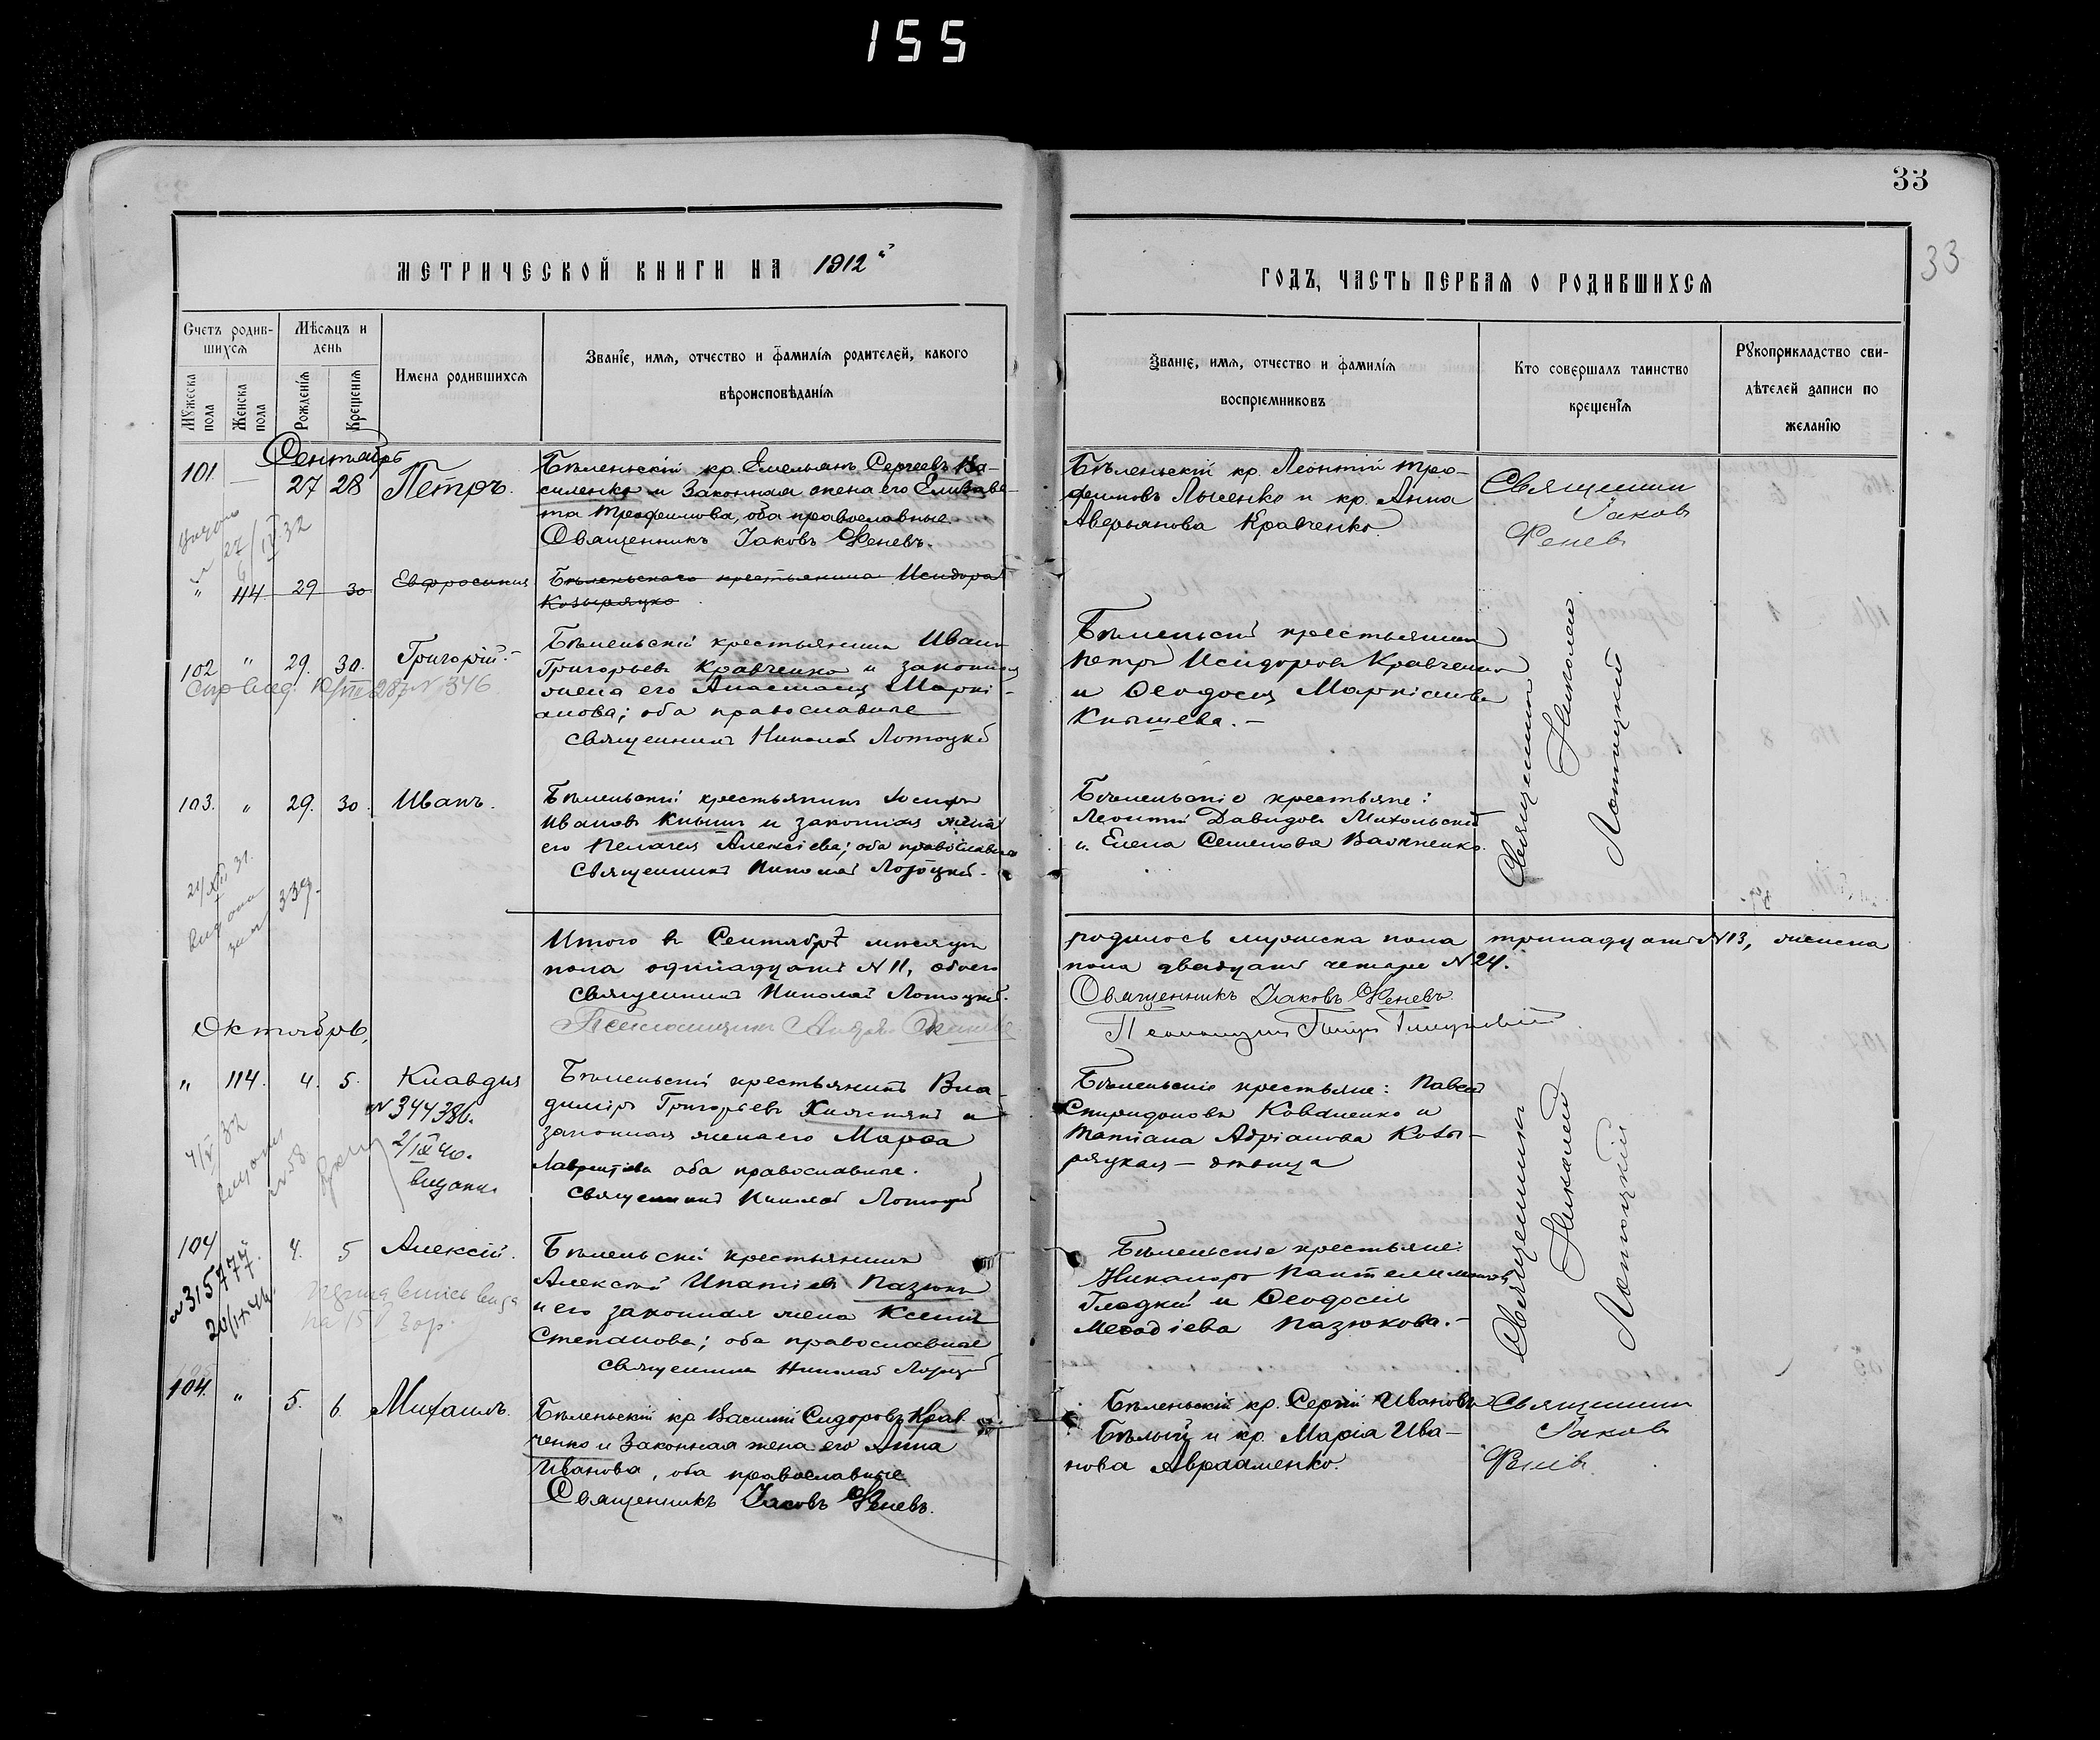 155
33
33
МЕТРИЧЕСКОЙ КНИГИ НА 1912й
ГОДЪ, ЧАСТЬ ПЕРВАЯ О РОДИВШИХСЯ
Счетъ родив-
шихся
Мужеска пола
Женска пола
Мѣсяцъ и
день
Рожденія
Крещенія
Имена родившихся
Званіе, имя, отчество и фамилія родителей, какого
вѣроисповѣданія
Званіе, имя, отчество и фамилія
воспріемниковъ
Кто совершалъ таинство
крещенія
Рукоприкладство сви-
дѣтелей записи по
желанію
Сентябрь
101. — 27 28 Петръ.
Бѣленьскій кр. Емельянъ Сергеевъ Ва-
силенко и законная жена его Елизаве-
та Трофимова, оба православные.
Священникъ Іаковъ Феневъ.
Бѣленьскій кр. Леонтій Тро-
фимовъ Лысенко и кр. Анна
Аверьянова Кравченко.
Священник
Іаков
Фенев
27/IV 32
" 114. 29 30 Евфросиния
Бѣленьскаго крестьянина Исидора
Козыряцко
102 " 29. 30. Григорій.
№ 346
Бѣленьскій крестьянинъ Иванъ
Григорьевъ Кравченко и законная
жена его Анастасия Маркі-
анова; оба православные
священникъ Николай Лотоцкій
Бѣленьскій крестьянин
Петръ Исидоровъ Кравченко
и Феодосия Маркіанова
Книшева. —
103. " 29. 30. Иванъ.
Бѣленьскій крестьянинъ Іосифъ
Ивановъ Книшъ и законная жена
его Пелагея Алексіева; оба православные
священникъ Николай Лотоцкій.
Бѣленьскіе крестьяне:
Леонтій Давидовъ Михольскій
и Елена Семенова Важненко.
Священникъ
Николай
Лотоцкій
339.
Итого въ Сентябрѣ месяцѣ
родилось мужеска пола тринадцать №13, женска
пола одинадцать №11, обоего
пола двадцать четыре №24.
священникъ Николай Лотоцкій.
Священникъ Іаковъ Феневъ.
Псаломщикъ
Псаломщик
Октябрь,
" 114. 4. 5. Клавдия
№ 344386.
2/IX 40.
4/IV 32
№ 58
Бѣленьскій крестьянинъ Вла-
димиръ Григорьевъ Книжнякъ и
законная жена его Марфа
Лаврентіева оба православные.
священникъ Николай Лотоцкій
Бѣленьскіе крестьяне: Павелъ
Спиридоновъ Коваленко и
Татіана Адріанова Козы-
ряцкая — дѣвица
104 4. 5 Алексій.
№ 315777.
Бѣленьскій крестьянинъ
Алексѣй Ипатіевъ Пазюкъ
и его законная жена Ксения
Степанова; оба православные
священникъ Николай Лотоцкій
Бѣленьскіе крестьяне:
Никаноръ Пантелимоновъ
Гладкій и Феодосия
Мефодіева Пазюкова. —
Священникъ
Николай
Лотоцкій
104. " 5. 6 Михаилъ.
Бѣленьскій кр. Василій Сидоровъ Крав-
ченко и законная жена его Анна
Иванова, оба православные.
Священникъ Іаковъ Феневъ.
Бѣленьскій кр. Сергій Ивановъ
Бѣлый и кр. Марія Ива-
нова Авраменко.
Священник
Іаков
Фенев